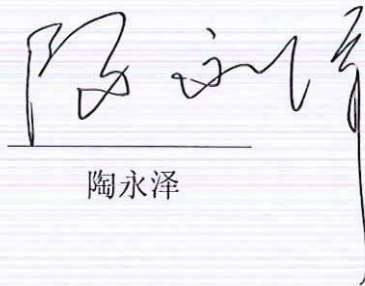 陶永泽
陶永泽